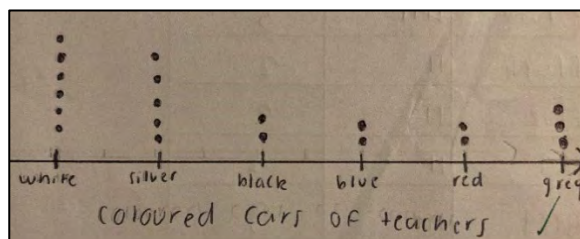 white silver black blue red grey
coloured cars of teachers